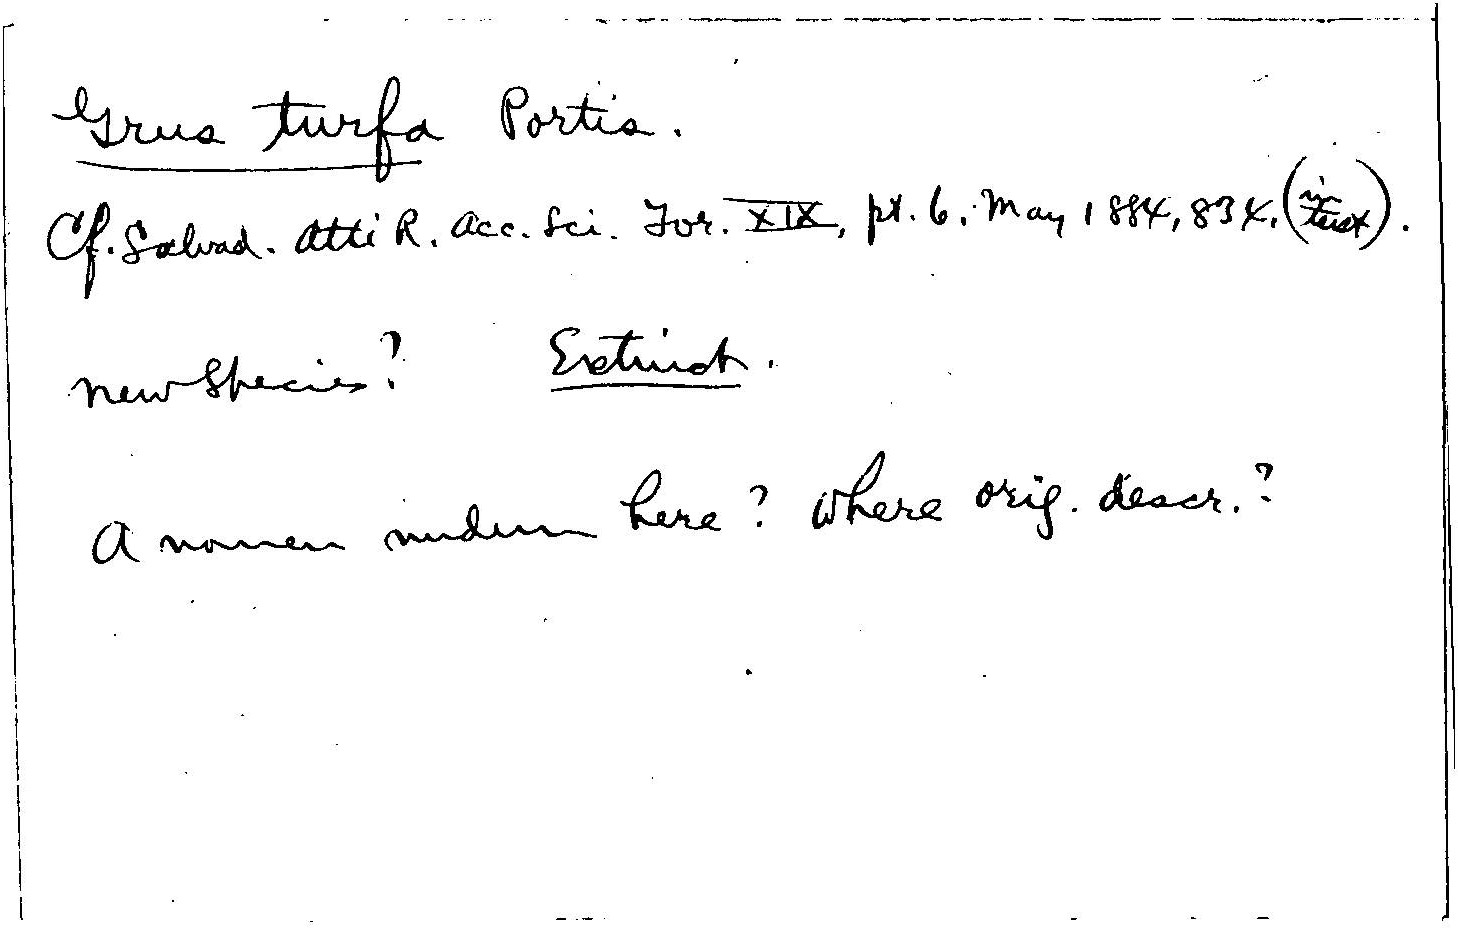 Grus turfa Portis.
Cf. Salvad. Atti R. Acc. Sci. Tor. XIX, pt. 6, May 1884, 834. (in text).
New Species? Extinct.
A nomen nudum here? Where orig. descr.?